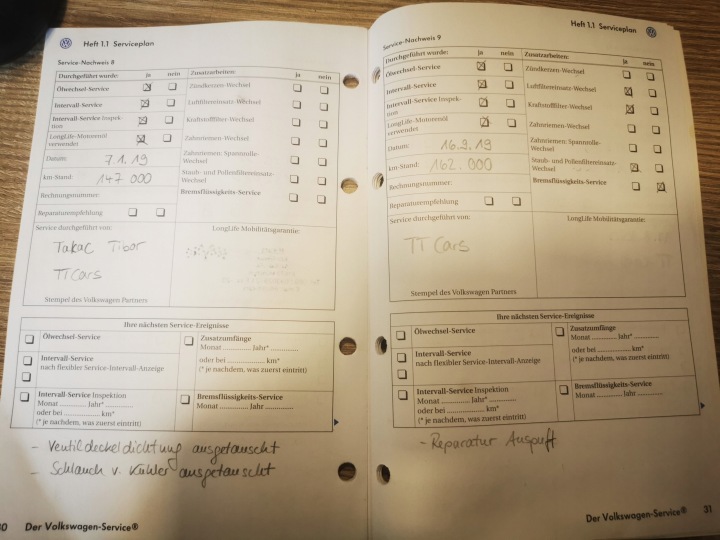 Heft 1.1 Serviceplan
Service-Nachweis 8
Durchgeführt wurde: ja nein
Ölwechsel-Service
Intervall-Service
Intervall-Service Inspek-
tion
LongLife-Motorenöl
verwendet
Datum: 7.1.19
km-Stand: 147 000
Rechnungsnummer:
Reparaturempfehlung
Zusatzarbeiten: ja nein
Zündkerzen-Wechsel
Luftfiltereinsatz-Wechsel
Kraftstofffilter-Wechsel
Zahnriemen-Wechsel
Zahnriemen: Spannrolle-
Wechsel
Staub- und Pollenfiltereinsatz-
Wechsel
Bremsflüssigkeits-Service
Service durchgeführt von:
Takac Tibor
TT Cars
Stempel des Volkswagen Partners
LongLife Mobilitätsgarantie:
Ihre nächsten Service-Ereignisse
Ölwechsel-Service
Intervall-Service
nach flexibler Service-Intervall-Anzeige
Intervall-Service Inspektion
Monat ............ Jahr* ............
oder bei ............ km*
(* je nachdem, was zuerst eintritt)
Zusatzumfänge
Monat ............ Jahr* ............
oder bei ............ km*
(* je nachdem, was zuerst eintritt)
Bremsflüssigkeits-Service
Monat ............ Jahr ............
- Ventildeckeldichtung ausgetauscht
- Schlauch v. Kühler ausgetauscht
30 Der Volkswagen-Service®
Heft 1.1 Serviceplan
Service-Nachweis 9
Durchgeführt wurde: ja nein
Ölwechsel-Service
Intervall-Service
Intervall-Service Inspek-
tion
LongLife-Motorenöl
verwendet
Datum: 16.9.19
km-Stand: 162.000
Rechnungsnummer:
Reparaturempfehlung
Zusatzarbeiten: ja nein
Zündkerzen-Wechsel
Luftfiltereinsatz-Wechsel
Kraftstofffilter-Wechsel
Zahnriemen-Wechsel
Zahnriemen: Spannrolle-
Wechsel
Staub- und Pollenfiltereinsatz-
Wechsel
Bremsflüssigkeits-Service
Service durchgeführt von:
TT Cars
Stempel des Volkswagen Partners
LongLife Mobilitätsgarantie:
Ihre nächsten Service-Ereignisse
Ölwechsel-Service
Intervall-Service
nach flexibler Service-Intervall-Anzeige
Intervall-Service Inspektion
Monat ............ Jahr* ............
oder bei ............ km*
(* je nachdem, was zuerst eintritt)
Zusatzumfänge
Monat ............ Jahr* ............
oder bei ............ km*
(* je nachdem, was zuerst eintritt)
Bremsflüssigkeits-Service
Monat ............ Jahr ............
- Reparatur Auspuff
Der Volkswagen-Service® 31